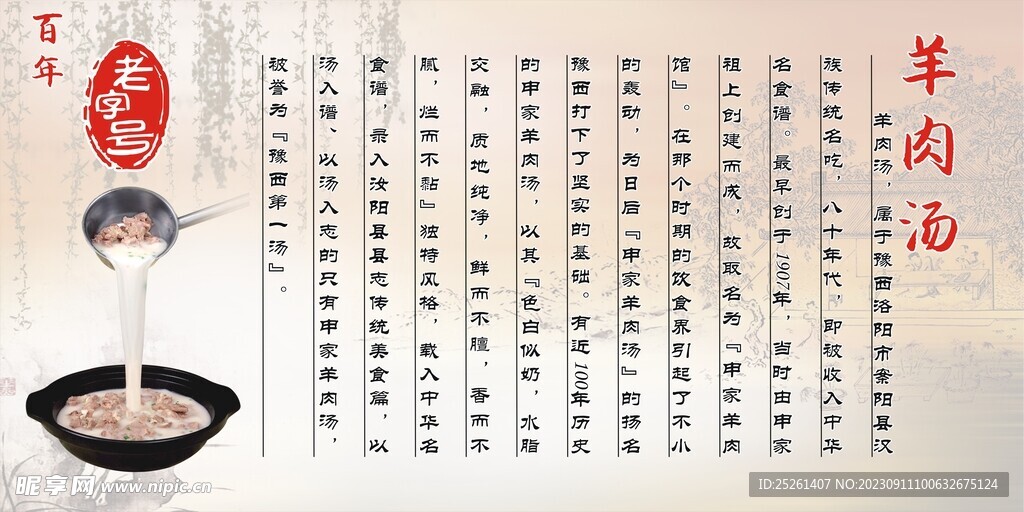 羊肉汤
羊肉汤，属于豫西洛阳市案阳县汉
族传统名吃，八十年代，即被收入中华
名食谱。最早创于1907年，当时由申家
祖上创建而成，故取名为『申家羊肉
馆』。在那个时期的饮食界引起了不小
的轰动，为日后『申家羊肉汤』的扬名
豫西打下了坚实的基础。有近100年历史
的申家羊肉汤，以其『色白似奶，水脂
交融，质地纯净，鲜而不膻，香而不
腻，烂而不黏』独特风格，载入中华名
食谱，录入汝阳县县志传统美食篇，以
汤入谱、以汤入志的只有申家羊肉汤，
被誉为『豫西第一汤』。
百年
老字号
昵享网 www.nipic.cn
ID:25261407 NO:20230911100632675124